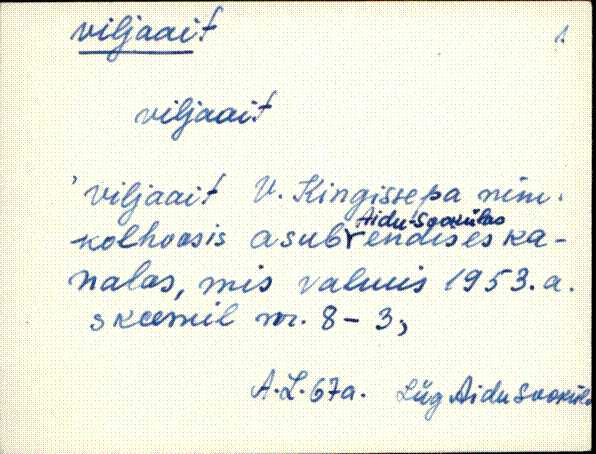 viljaait
1.
viljaait
'viljaait V. Kingissepa nim.
kolhoosis asub Aidu-Sookülas endises ka-
nalas, mis valmis 1953.a.
skeemil nr. 8-3,
A.L. 67a. Lüg Aidu Sookül